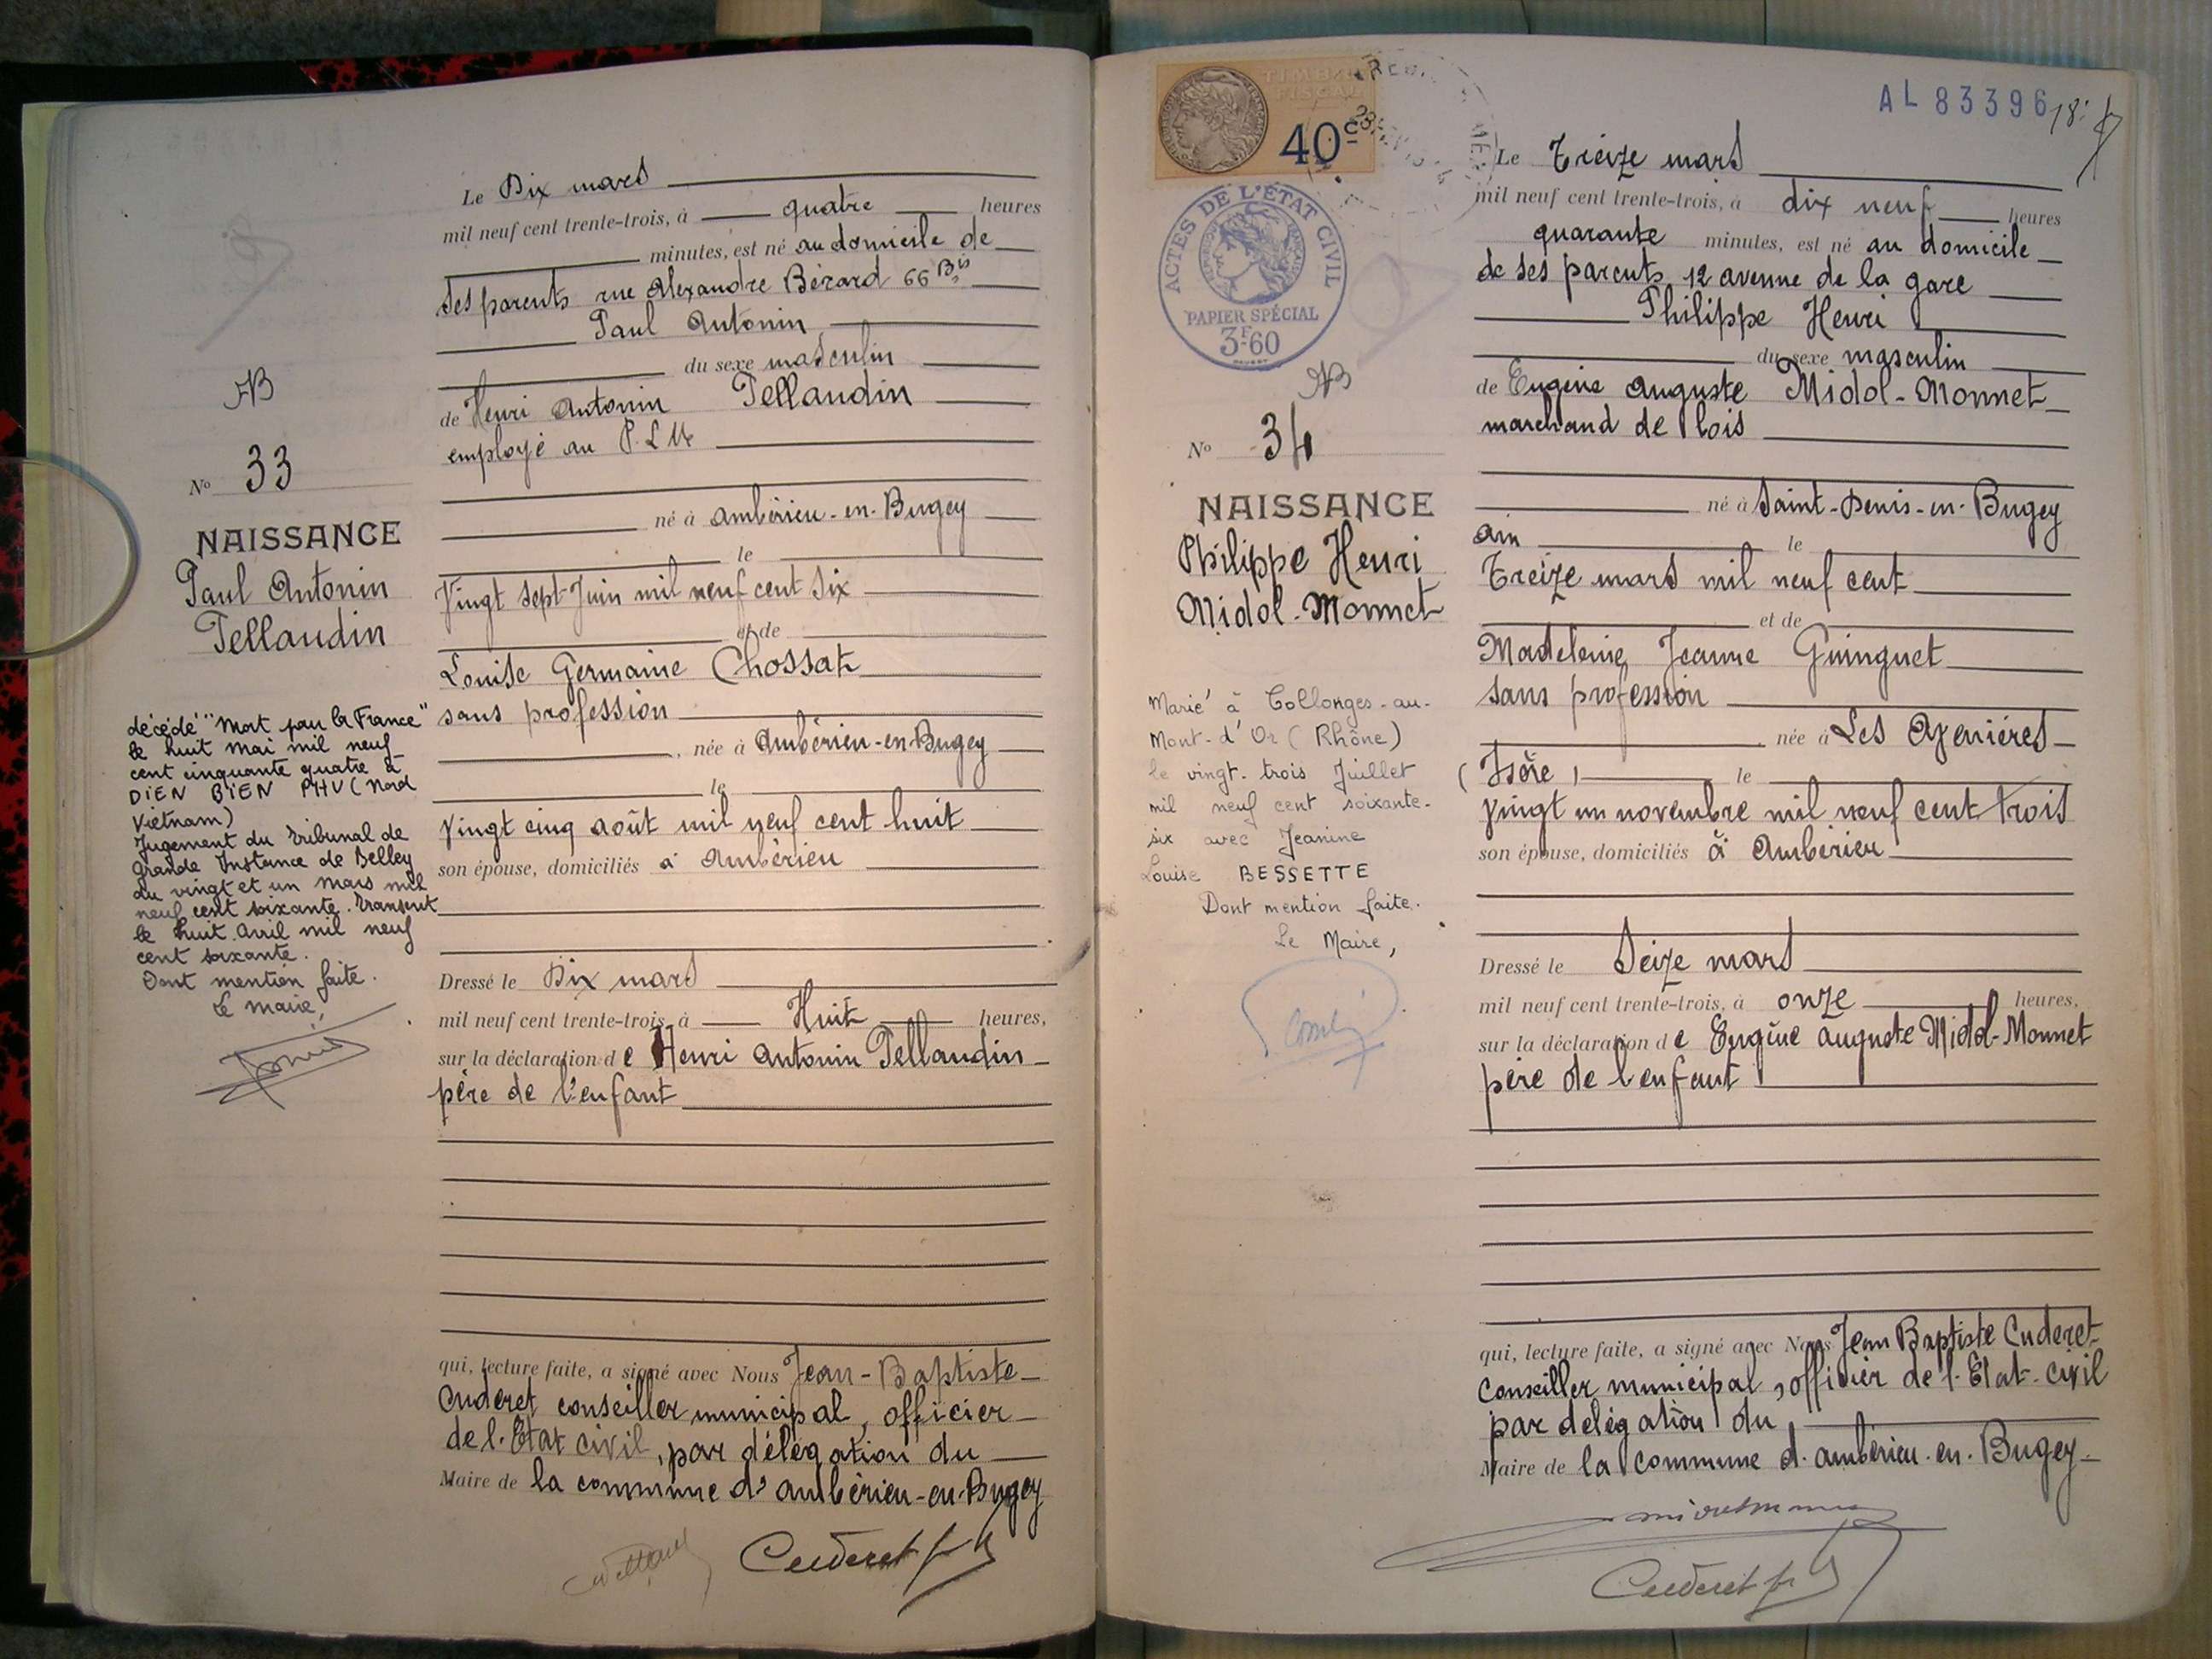 AB
No 33
NAISSANCE
Paul Antonin
Pellaudin
décédé "Mort pour la France"
le huit mai mil neuf
cent cinquante quatre à
DiEN BiEN PHU (Nord
Vietnam)
Jugement du Tribunal de
Grande Instance de Belley
du vingt et un mars mil
neuf cent soixante. Transcrit
le huit Avril mil neuf
cent soixante.
Dont mention faite.
Le Maire,
Le Dix mars
mil neuf cent trente-trois, à quatre heures
minutes, est né au domicile de
ses parents rue Alexandre Bérard 66 Bis
Paul Antonin
du sexe masculin
de Henri Antonin Pellaudin
employé au P.L.M
né à Ambérieu-en-Bugey
le
Vingt sept Juin mil neuf cent six
et de
Louise Germaine Chossat
sans profession
, née à Ambérieu-en-Bugey
le
Vingt cinq août mil neuf cent huit
son épouse, domiciliés à Ambérieu
Dressé le Dix mars
mil neuf cent trente-trois, à Huit heures,
sur la déclaration de Henri Antonin Pellaudin
père de l'enfant
qui, lecture faite, a signé avec Nous Jean-Baptiste
Cuderet conseiller municipal, officier
de l'Etat civil, par délégation du
Maire de la commune d'Ambérieu-en-Bugey
Cuderet
TIMBRE
FISCAL
40c
ACTES DE L'ÉTAT CIVIL
PAPIER SPÉCIAL
3F60
AB
No 34
NAISSANCE
Philippe Henri
Midol-Monnet
Marié à Collonges-au-
Mont-d'Or (Rhône)
le vingt-trois Juillet
mil neuf cent soixante-
six avec Jeanine
Louise BESSETTE
Dont mention faite.
Le Maire,
AL 83396
18
Le Treize mars
mil neuf cent trente-trois, à dix neuf heures
quarante minutes, est né au domicile
de ses parents 12 avenue de la gare
Philippe Henri
du sexe masculin
de Eugène Auguste Midol-Monnet
marchand de bois
né à Saint-Denis-en-Bugey
Ain le
Treize mars mil neuf cent
et de
Madeleine Jeanne Guinguet
sans profession
, née à Les Avenières
(Isère) le
Vingt un novembre mil neuf cent trois
son épouse, domiciliés à Ambérieu
Dressé le Seize mars
mil neuf cent trente-trois, à onze heures,
sur la déclaration de Eugène Auguste Midol-Monnet
père de l'enfant
qui, lecture faite, a signé avec Nous Jean Baptiste Cuderet
Conseiller municipal, officier de l'Etat-civil
par délégation du
Maire de la commune d'Ambérieu-en-Bugey
Cuderet